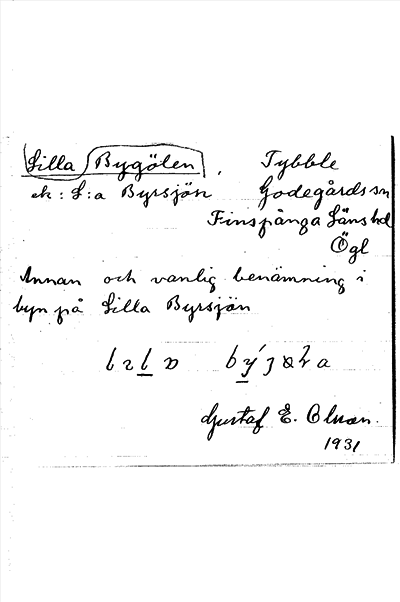 Lilla Bygölen, Tybble
ek: L:a Byrsjön Godegårds sn
Finspånga Läns hd
Ögl
Annan och vanlig benämning i
byn på Lilla Byrsjön
Gustaf E. Olson.
1931